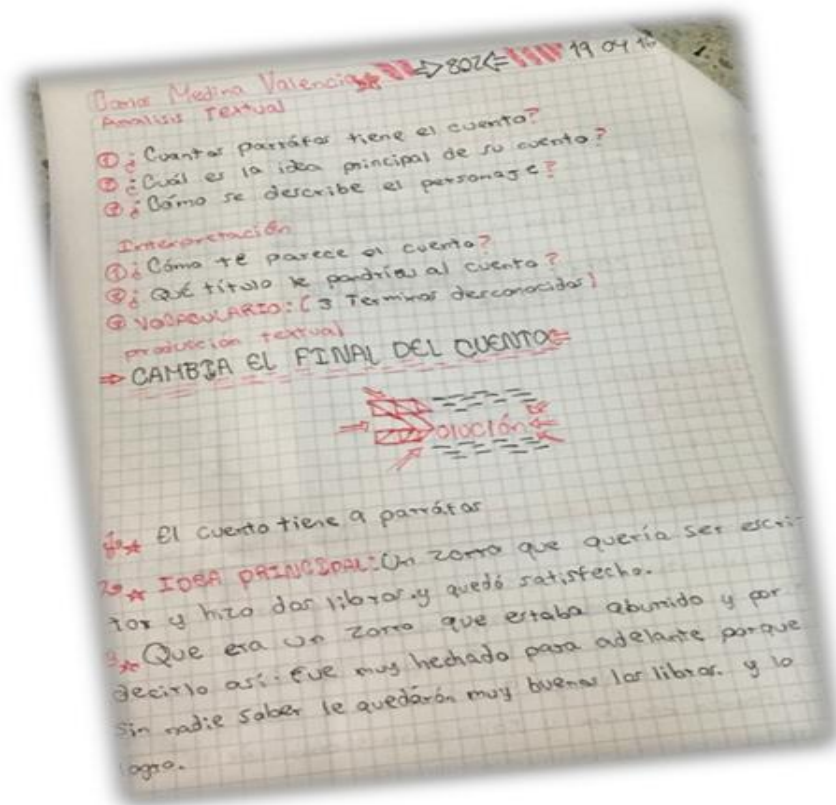 Medina Valencia ⇒802⇐ 19 04 16
Analisis Textual
① ¿Cuantos parráfos tiene el cuento?
② ¿Cuál es la idea principal de su cuento?
③ ¿Cómo se describe el personaje?
Interpretación
① ¿Cómo te parece el cuento?
② ¿Qué título le pondrías al cuento?
③ VOCABULARIO: (3 Terminos desconocidos)
producción textual
⇒ CAMBIA EL FINAL DEL CUENTO⇐
Solución
1º★ El cuento tiene 9 parráfos
2º★ IDEA PRINCIPAL: Un zorro que quería ser escri-
tor y hizo dos libros. y quedó satisfecho.
3★ Que era un zorro que estaba aburrido y por
decirlo así: fue muy hechado para adelante porque
sin nadie saber le quedarón muy buenos los libros. y lo
logro.